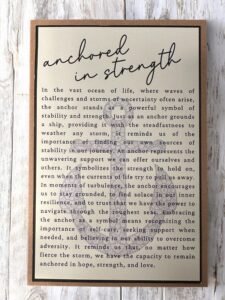 anchored
in strength
In the vast ocean of life, where waves of
challenges and storms of uncertainty often arise,
the anchor stands as a powerful symbol of
stability and strength. Just as an anchor grounds
a ship, providing it with the steadfastness to
weather any storm, it reminds us of the
importance of finding our own sources of
stability in our journey. An anchor represents the
unwavering support we can offer ourselves and
others. It symbolizes the strength to hold on,
even when the currents of life try to pull us away.
In moments of turbulence, the anchor encourages
us to stay grounded, to find solace in our inner
resilience, and to trust that we have the power to
navigate through the roughest seas. Embracing
the anchor as a symbol means recognizing the
importance of self-care, seeking support when
needed, and believing in our ability to overcome
adversity. It reminds us that, no matter how
fierce the storm, we have the capacity to remain
anchored in hope, strength, and love.